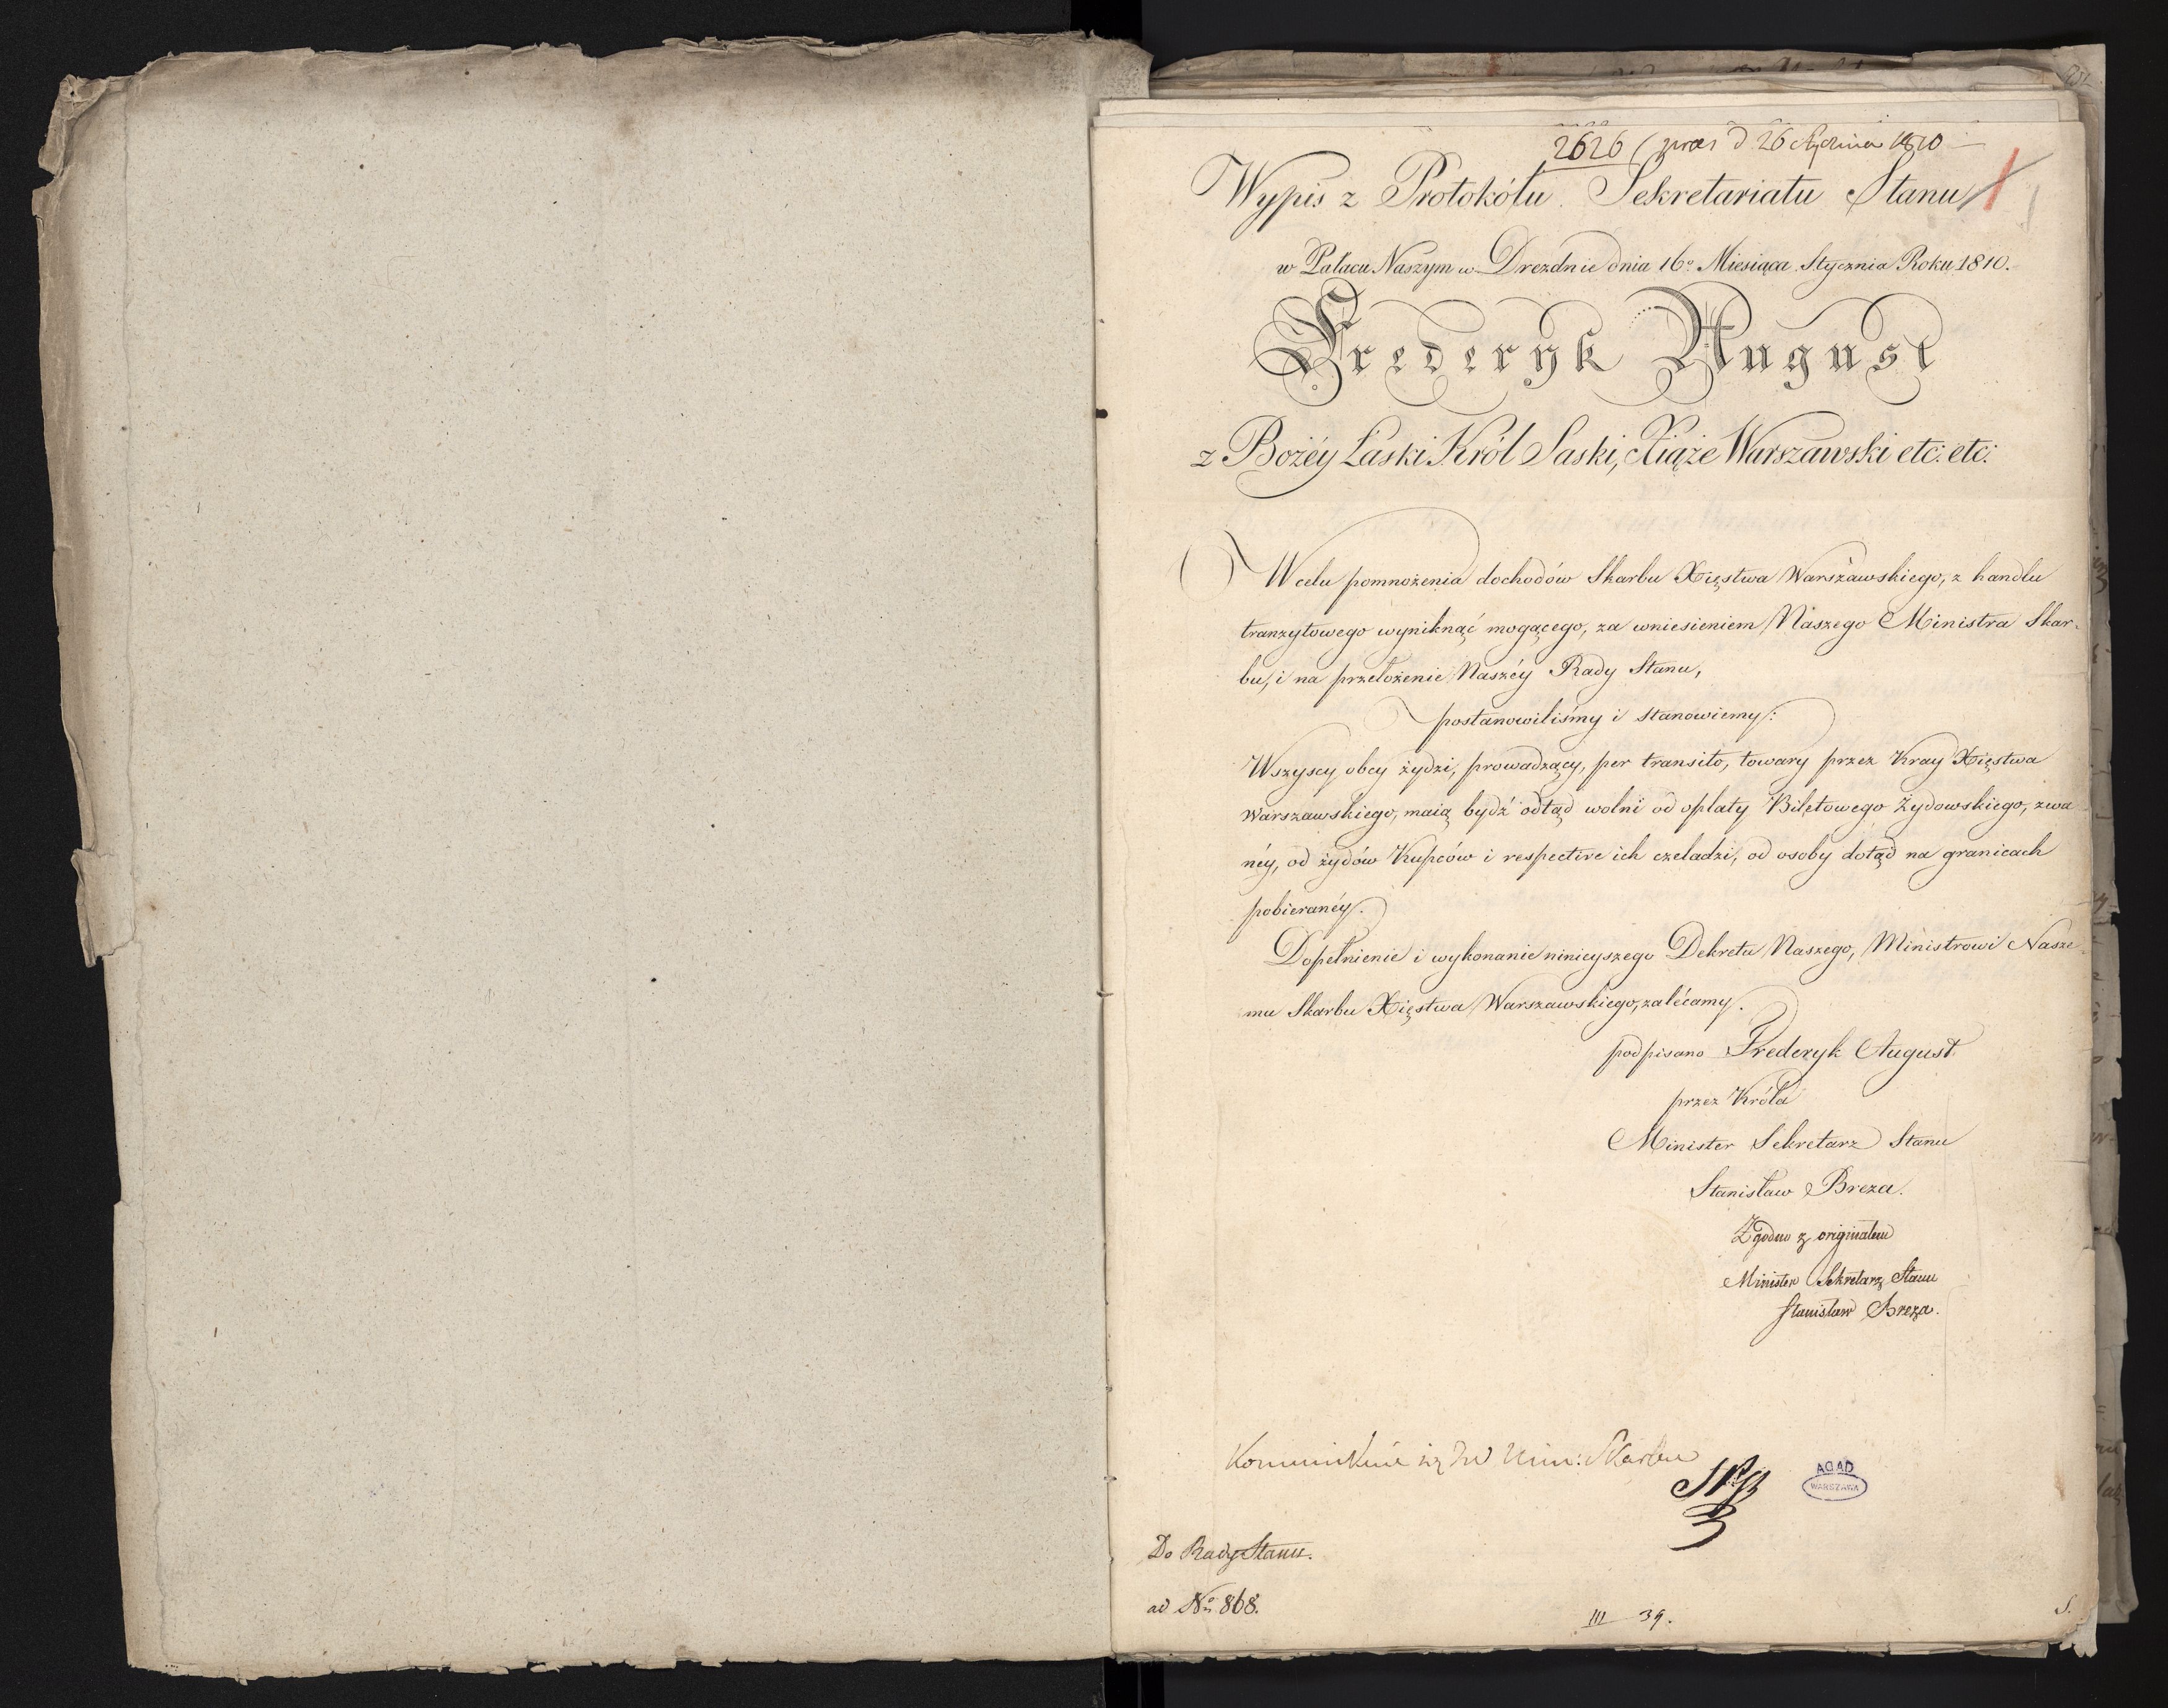 2626 praes d 26 Stycznia 1810
Wypis z Protokółu Sekretariatu Stanu
w Pałacu Naszym w Dreznie dnia 16º Miesiąca Stycznia Roku 1810.
Frederyk August
z Bożéy Łaski Król Saski, Xiąże Warszawski etc: etc:
W celu pomnożenia dochodów Skarbu Xięstwa Warszawskiego, z handlu
tranzytowego wyniknąć mogącego, za wniesieniem Naszego Ministra Skar-
bu, i na przełożenie Naszéy Rady Stanu,
postanowiliśmy i stanowiemy:
Wszyscy obcy żydzi, prowadzący, per transito, towary przez Kray Xięstwa
Warszawskiego, maią bydź odtąd wolni od opłaty Biletowego Żydowskiego, zwa
néy, od żydów Kupców i respective ich czeladzi, od osoby dotąd na granicach
pobieranéy.
Dopełnienie i wykonanie ninieyszego Dekretu Naszego, Ministrowi Nasze-
mu Skarbu Xięstwa Warszawskiego, zalécamy.
podpisano Frederyk August
przez Króla
Minister Sekretarz Stanu
Stanisław Breza.
Zgodno z originałem
Minister Sekretarz Stanu
Stanisław Breza.
Min: Skarbu
AGAD
WARSZAWA
Do Rady Stanu.
ad Nº 868.
III 39.